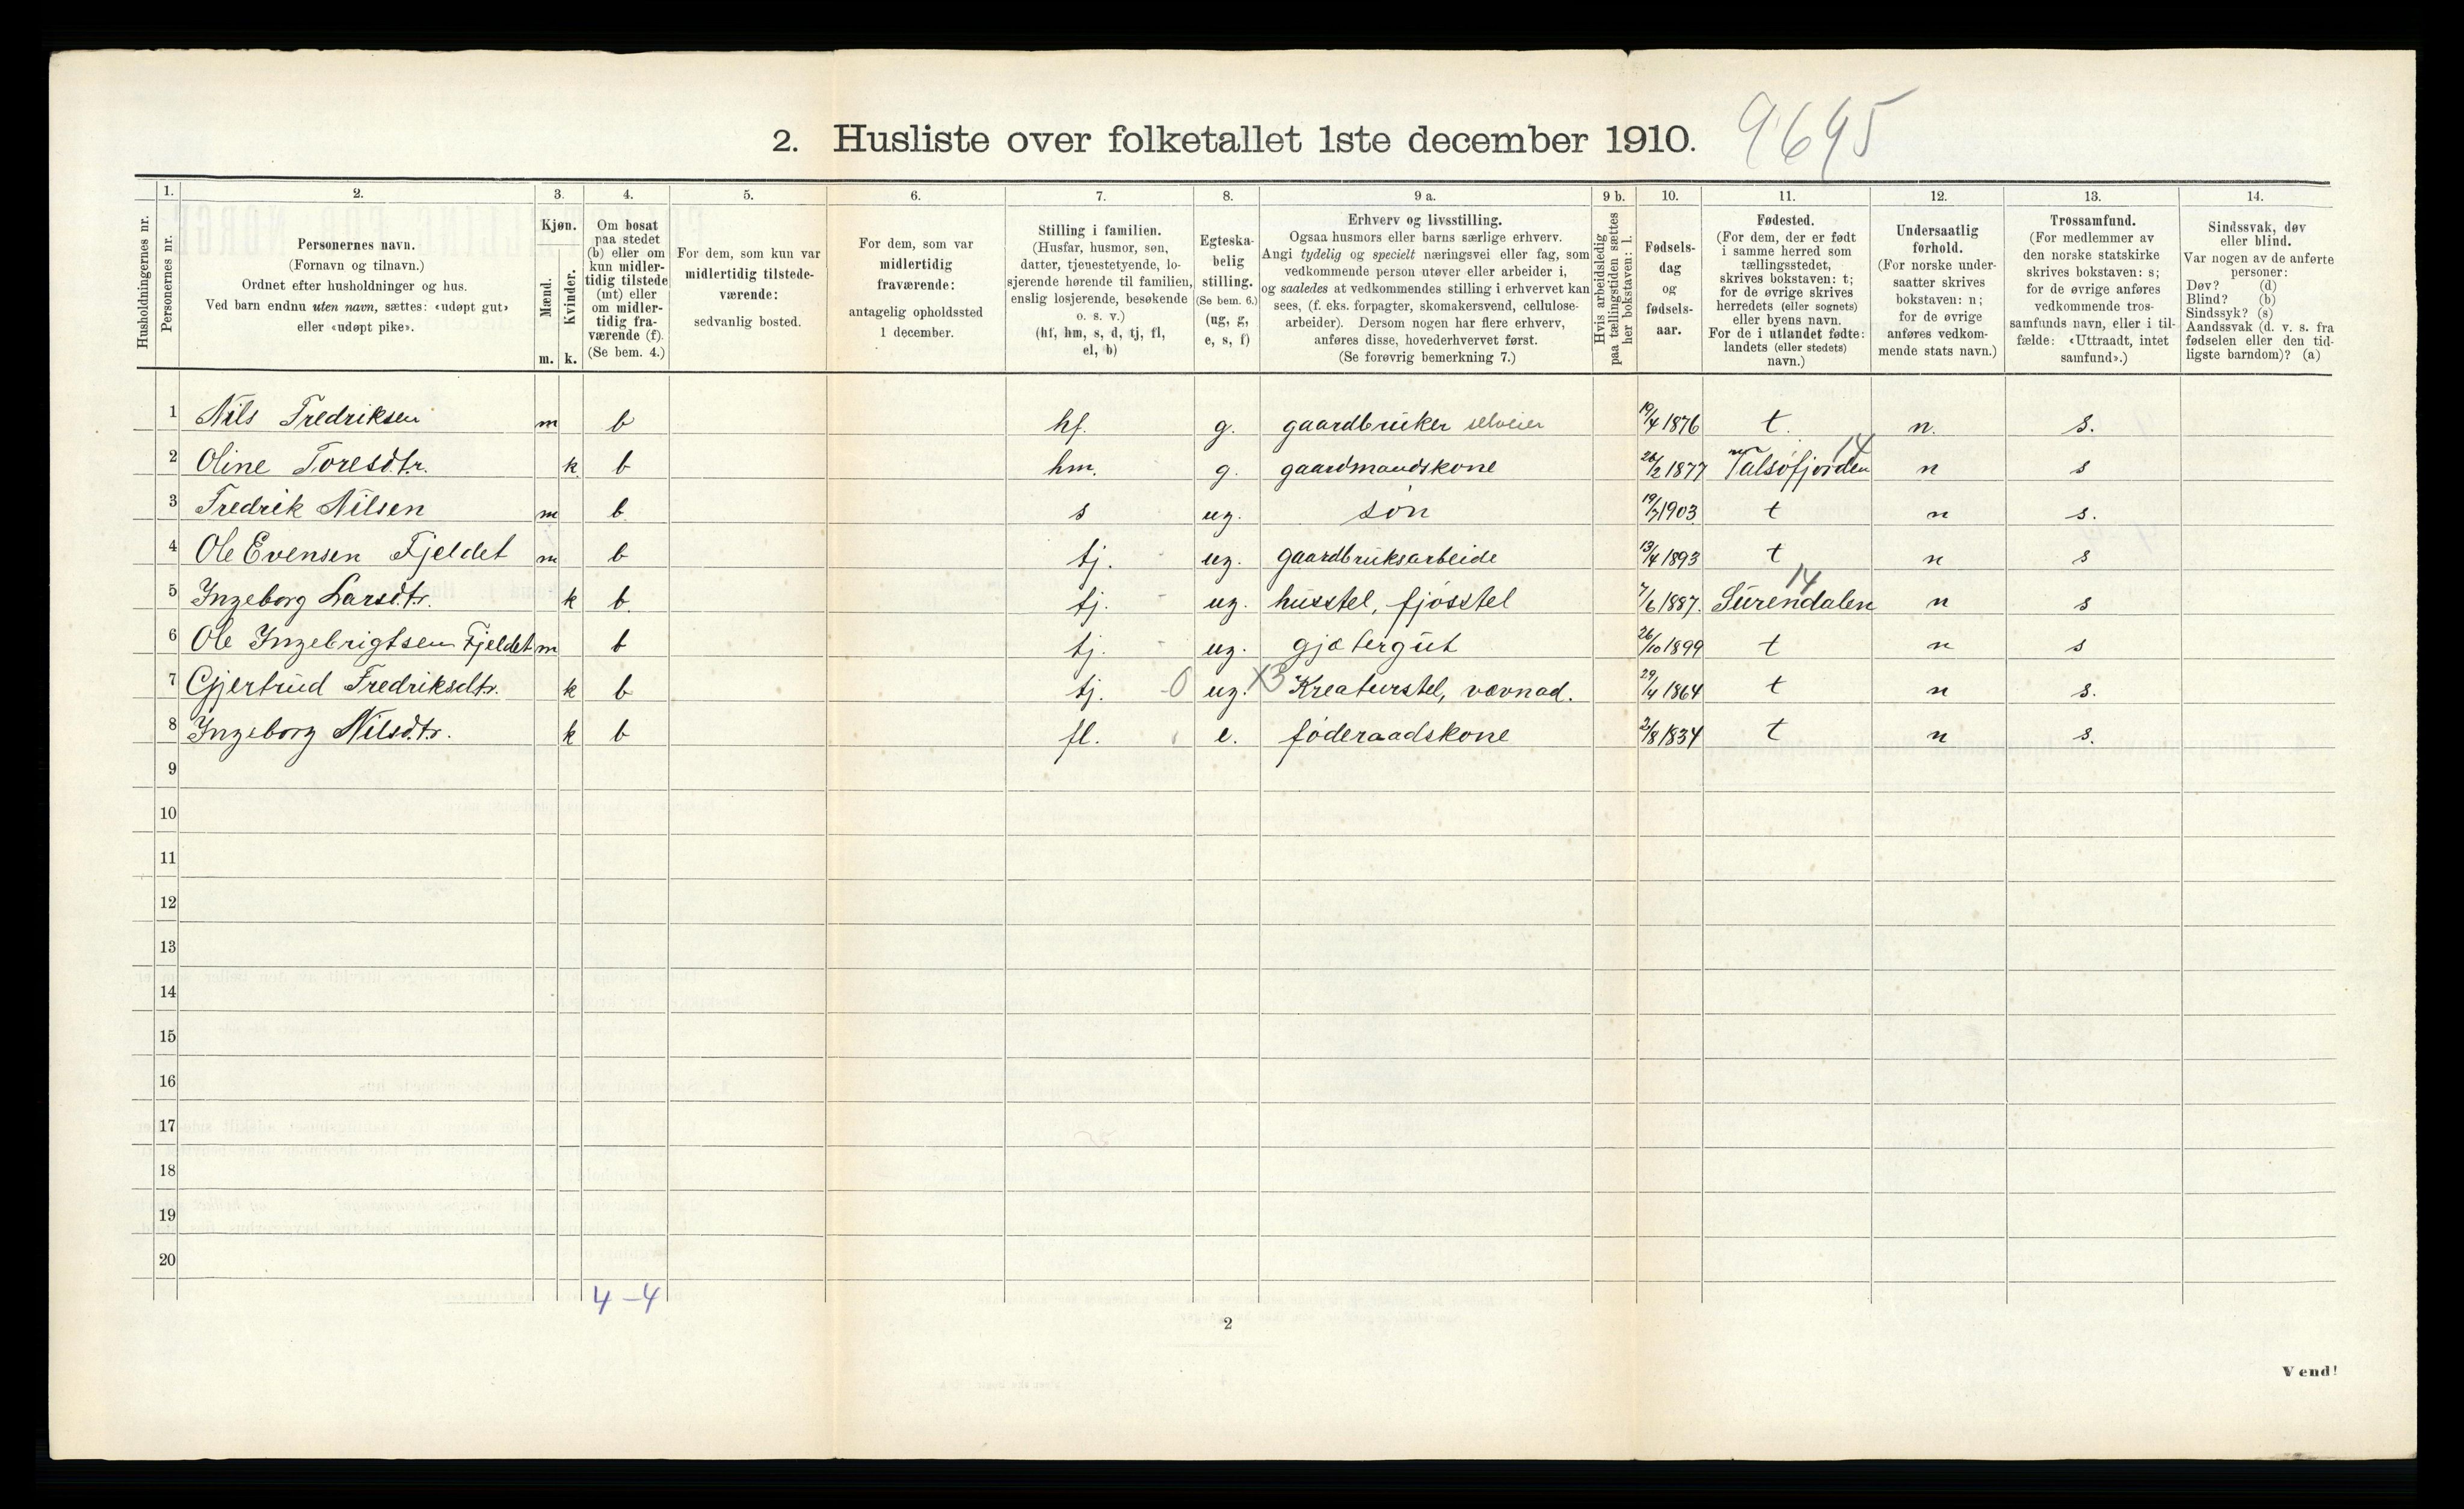 2. Husliste over folketallet 1ste december 1910. 9695
Husholdningernes nr.
1. Personernes nr.
2. Personernes navn.
(Fornavn og tilnavn.)
Ordnet efter husholdninger og hus.
Ved barn endnu uten navn, sættes: «udøpt gut»
eller «udøpt pike».
3. Kjøn.
Mænd. Kvinder.
m. k.
4. Om bosat
paa stedet
(b) eller om
kun midler-
tidig tilstede
(mt) eller
om midler-
tidig fra-
værende (f).
(Se bem. 4.)
5. For dem, som kun var
midlertidig tilstede-
værende:
sedvanlig bosted.
6. For dem, som var
midlertidig
fraværende:
antagelig opholdssted
1 december.
7. Stilling i familien.
(Husfar, husmor, søn,
datter, tjenestetyende, lo-
sjerende hørende til familien,
enslig losjerende, besøkende
o. s. v.)
(hf, hm, s, d, tj, fl,
el, b)
8. Egteska-
belig
stilling.
(Se bem. 6.)
(ug, g,
e, s, f)
9 a. Erhverv og livsstilling.
Ogsaa husmors eller barns særlige erhverv.
Angi tydelig og specielt næringsvei eller fag, som
vedkommende person utøver eller arbeider i,
og saaledes at vedkommendes stilling i erhvervet kan
sees, (f. eks. forpagter, skomakersvend, cellulose-
arbeider). Dersom nogen har flere erhverv,
anføres disse, hovederhvervet først.
(Se forøvrig bemerkning 7.)
9 b. Hvis arbeidsledig
paa tællingstiden sættes
her bokstaven: l.
10. Fødsels-
dag
og
fødsels-
aar.
11. Fødested.
(For dem, der er født
i samme herred som
tællingsstedet,
skrives bokstaven: t;
for de øvrige skrives
herredets (eller sognets)
eller byens navn.
For de i utlandet fødte:
landets (eller stedets)
navn.)
12. Undersaatlig
forhold.
(For norske under-
saatter skrives
bokstaven: n;
for de øvrige
anføres vedkom-
mende stats navn.)
13. Trossamfund.
(For medlemmer av
den norske statskirke
skrives bokstaven: s;
for de øvrige anføres
vedkommende tros-
samfunds navn, eller i til-
fælde: «Uttraadt, intet
samfund».)
14. Sindssvak, døv
eller blind.
Var nogen av de anførte
personer:
Døv? (d)
Blind? (b)
Sindssyk? (s)
Aandssvak (d. v. s. fra
fødselen eller den tid-
ligste barndom)? (a)
1 Nils Fredriksen m b hf. g. gaardbruker selveier 19/4 1876 t. n. s.
2 Oline Toresdtr. k b hm. g. gaardmandskone 26/2 1877 Valsøfjorden 14 n s
3 Fredrik Nilsen m b s ug. søn 19/7 1903 t n s.
4 Ole Evensen Fjeldet m b tj. ug. gaardbruksarbeide 13/4 1893 t n s
5 Ingeborg Larsdtr. k b. tj. ug. husstel, fjøsstel 7/6 1887. Surendalen 14 n s
6 Ole Ingebrigtsen Fjeldet m b tj. ug. gjætergut 26/10 1899 t n s
7 Gjertrud Fredriksdtr. k b tj. -0 ug. X3 Kreaturstel, vævnad. 29/4 1864 t n s.
8 Ingeborg Nilsdtr. k b fl. e. føderaadskone 2/8 1834 t n s.
9
10
11
12
13
14
15
16
17
18
19
20
4-4
2
Vend!